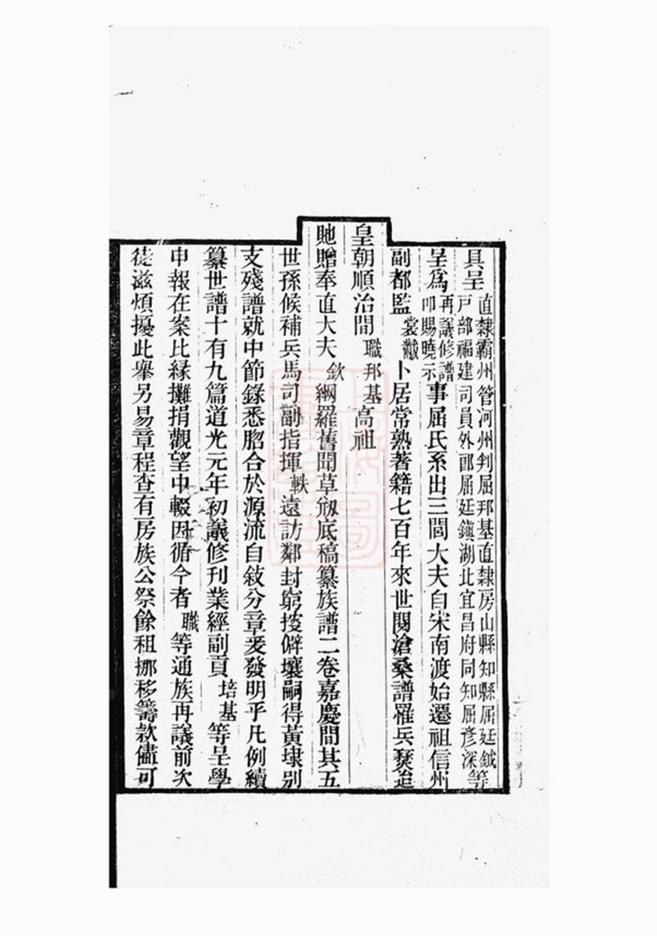 具呈直隸霸州管河州判屈邦基直隸房山縣知縣屈廷鉞等戶部福建司員外郎屈廷鎮湖北宜昌府同知屈彥深
呈為再議修譜叩賜曉示事屈氏系出三閭大夫自宋南渡始遷祖信州
副都監裳獻卜居常熟著籍七百年來世閱滄桑譜罹兵燹迨
皇朝順治間職邦基高祖
貤贈奉直大夫欽綱羅舊聞草剏底稿纂族譜二卷嘉慶間其五
世孫候補兵馬司副指揮軼遠訪鄰封窮搜僻壤嗣得黃埭別
支殘譜就中節錄悉脗合於源流自敍分章爰發明乎凡例續
纂世譜十有九篇道光元年初議修刊業經副貢培基等呈學
申報在案比緣攤捐觀望中輟因循今者職等通族再議前次
徒滋煩擾此舉另易章程查有房族公祭餘租挪移籌款儘可